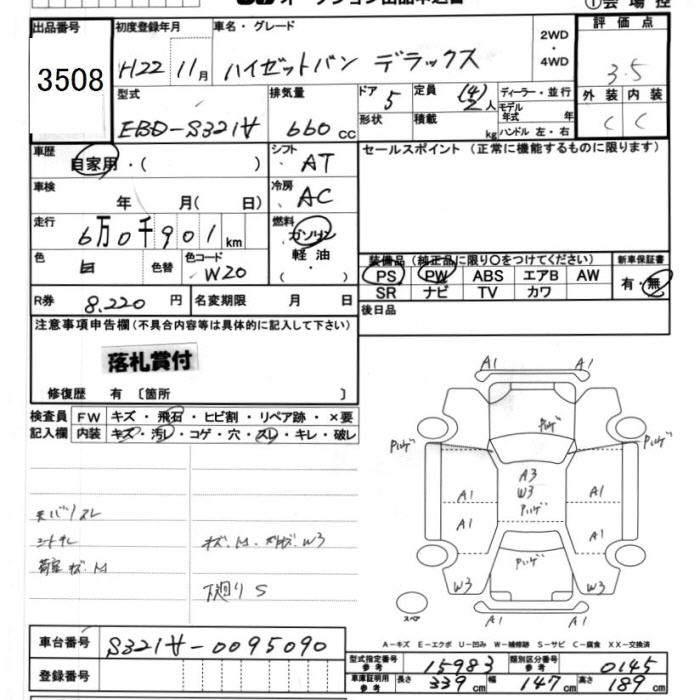 オークション出品申込書
①会場控
出品番号 3508
初度登録年月 H22 11月
車名・グレード ハイゼットバン デラックス
2WD・4WD
評価点 3.5
外装 C 内装 C
型式 EBD-S321V
排気量 660cc
ドア 5 形状
定員 (4) 2人 積載 kg
ディーラー・並行 モデル年式 年 ハンドル 左・右
車歴 自家用・( )
シフト AT
セールスポイント(正常に機能するものに限ります)
車検 年 月( 日)
冷房 AC
走行 6万0千901km
燃料 ガソリン 軽油 ( )
色 白 色替 色コード W20
装備品(純正品に限り○をつけてください) 新車保証書
PS PW ABS エアB AW 有・無
SR ナビ TV カワ
R券 8,220円 名変期限 月 日
後日品
注意事項申告欄(不具合内容等は具体的に記入して下さい)
落札賞付
修復歴 有〔箇所 〕
検査員記入欄 FW キズ・飛石・ヒビ割・リペア跡・×要
内装 キズ・汚レ・コゲ・穴・スレ・キレ・破レ
天バリスレ
シートキレ
荷室キズ、M
キズ、M・
W3
下廻りS
A1 A1
Pハゲ
Pハゲ Pハゲ
A3
W3
Pハゲ
A1 A1
A1 A1
Pハゲ
W3 W3
A1 A1
スペア
A-キズ E-エクボ U-凹み W-補修跡 S-サビ C-腐食 XX-交換済
車台番号 S321V-0095090
型式指定番号 参考 15983 類別区分番号 参考 0145
登録番号
車庫証明用 参考 長さ 339cm 幅 147cm 高さ 189cm